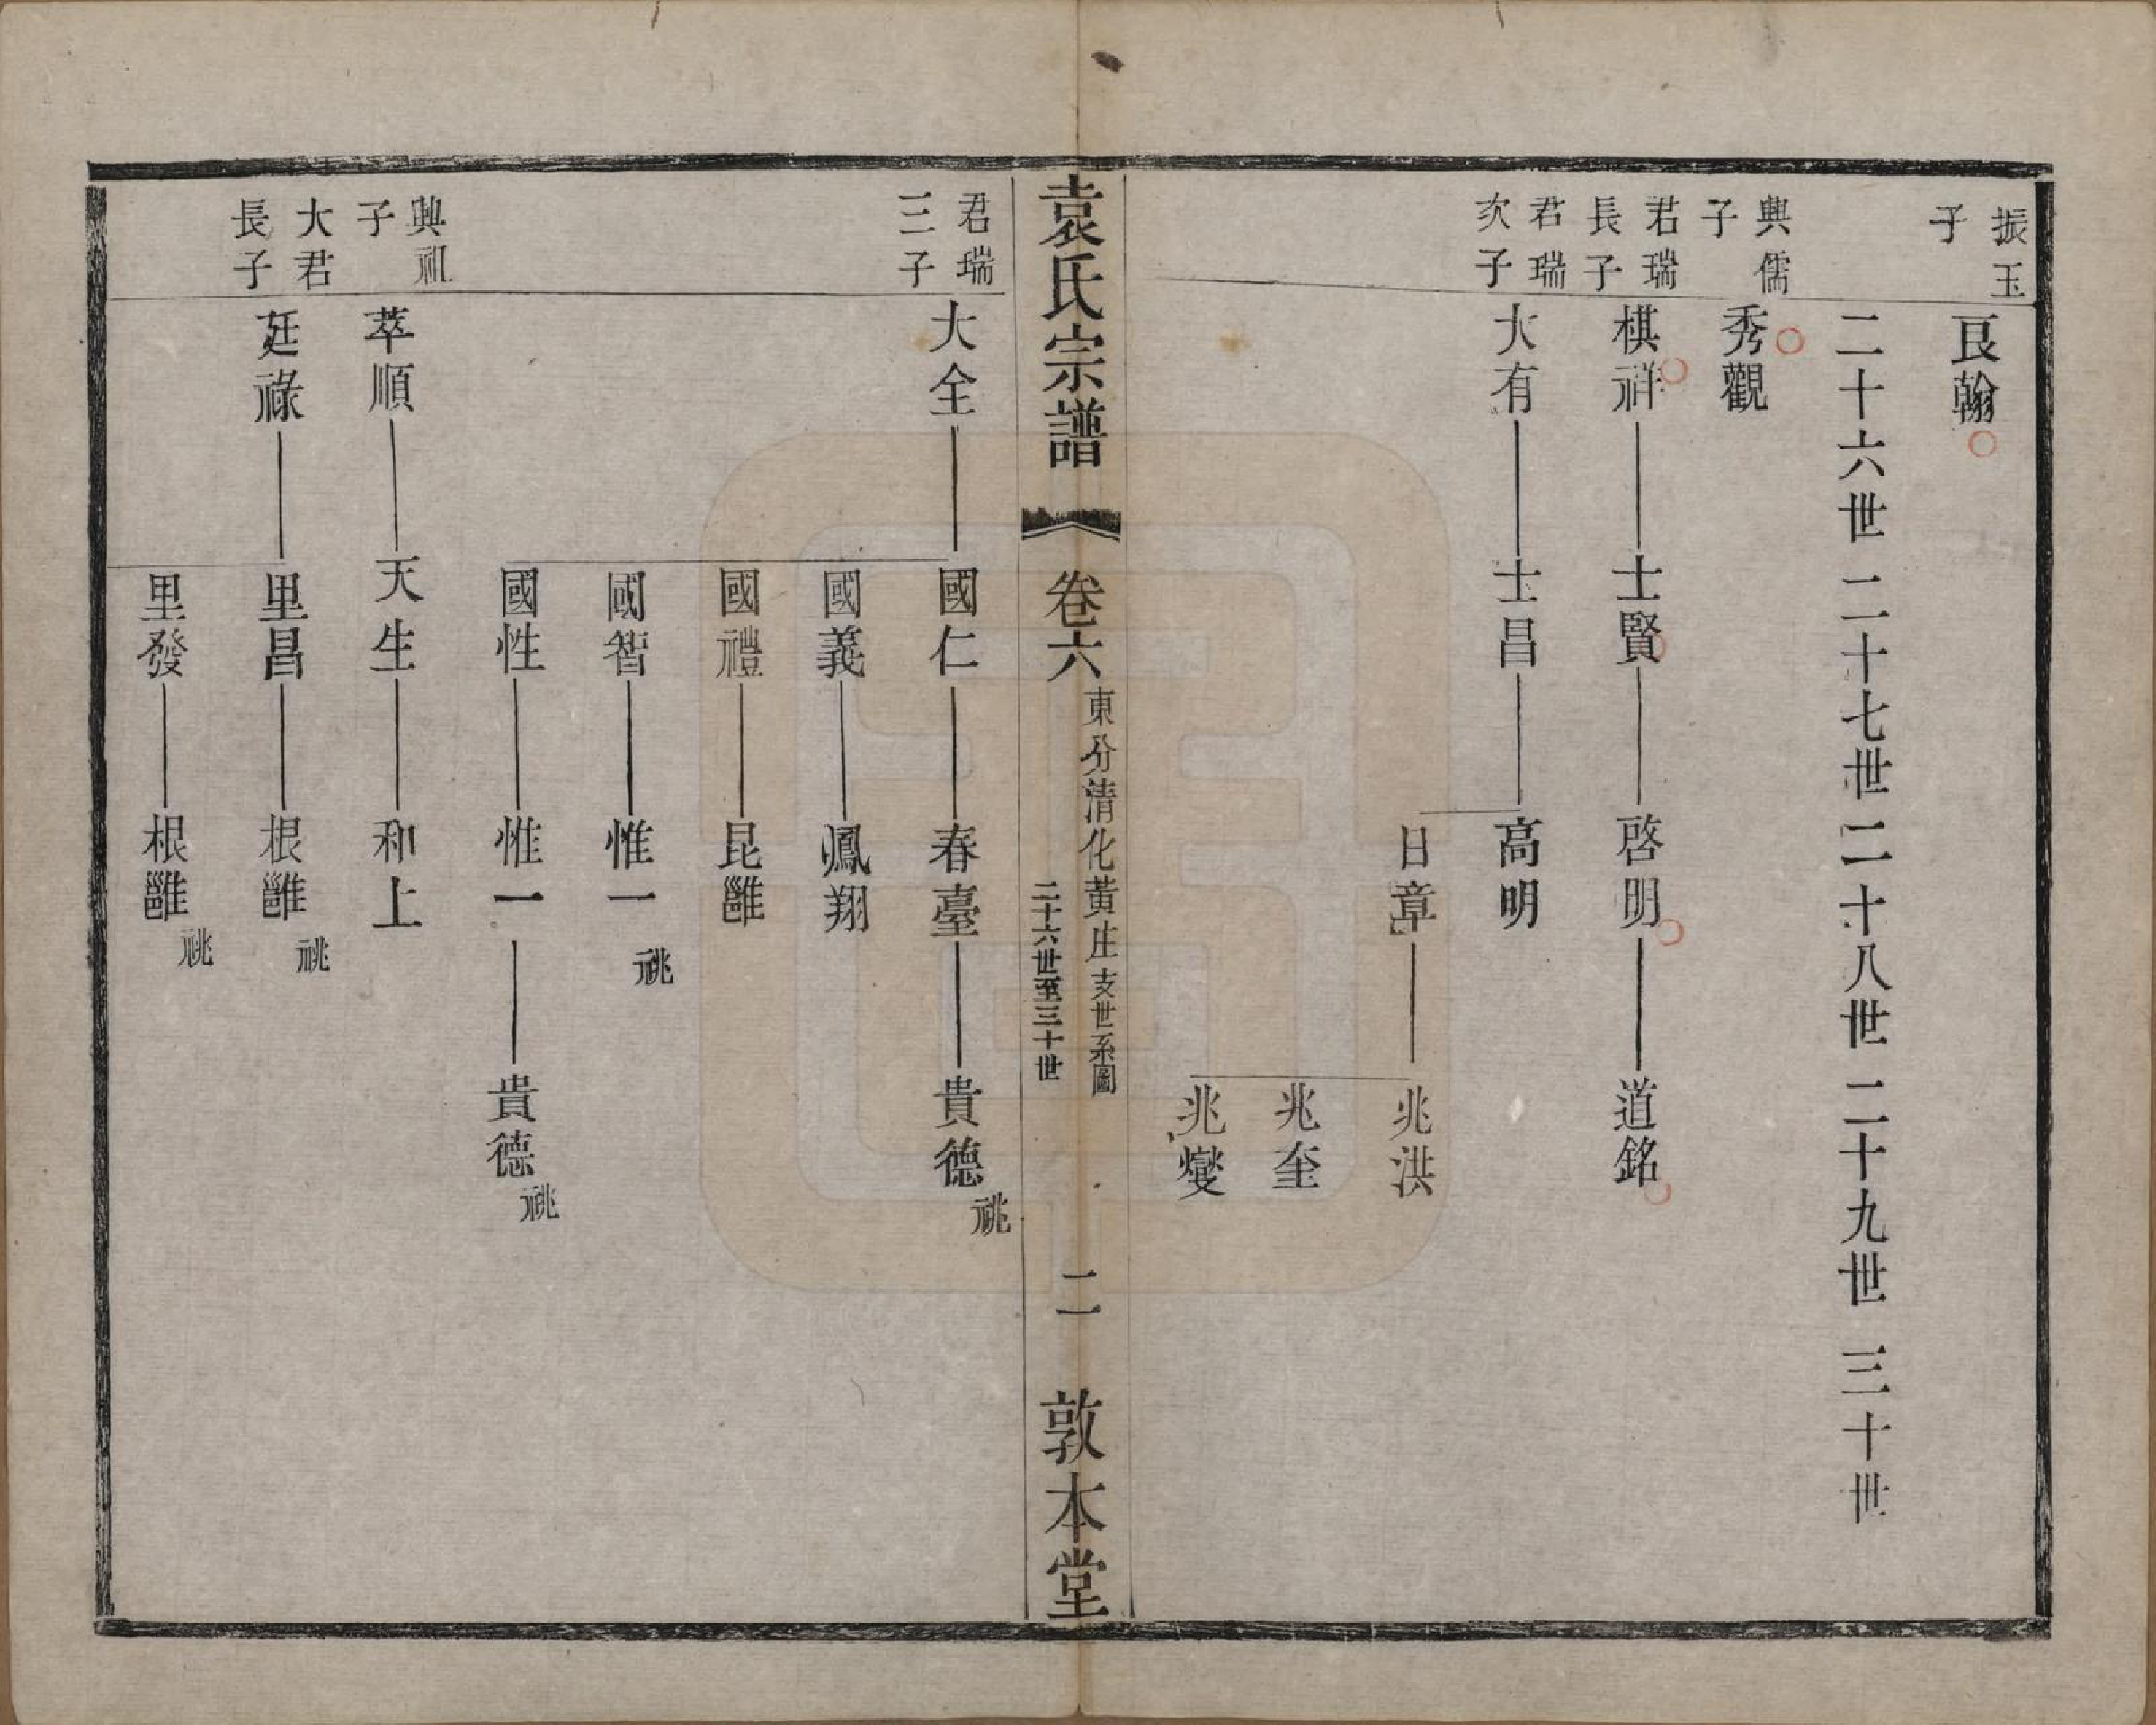 振玉子
艮翰
二十六世 二十七世 二十八世 二十九世 三十世
興儒子
秀觀
君瑞長子
棋祥 士賢 啓明 道銘
君瑞次子
大有 士昌 高明
日章 兆洪
兆奎
兆燮
袁氏宗譜 卷六 東分清化黃庄支世系圖 二十六世至三十世 二 敦本堂
君瑞三子
大全 國仁 春臺 貴德 祧
國義 鳳翔
國禮 昆雝
國智 惟一 祧
國性 惟一 貴德 祧
興祖子
萃順 天生 和上
大君長子
廷祿 里昌 根雝 祧
里發 根雝 祧